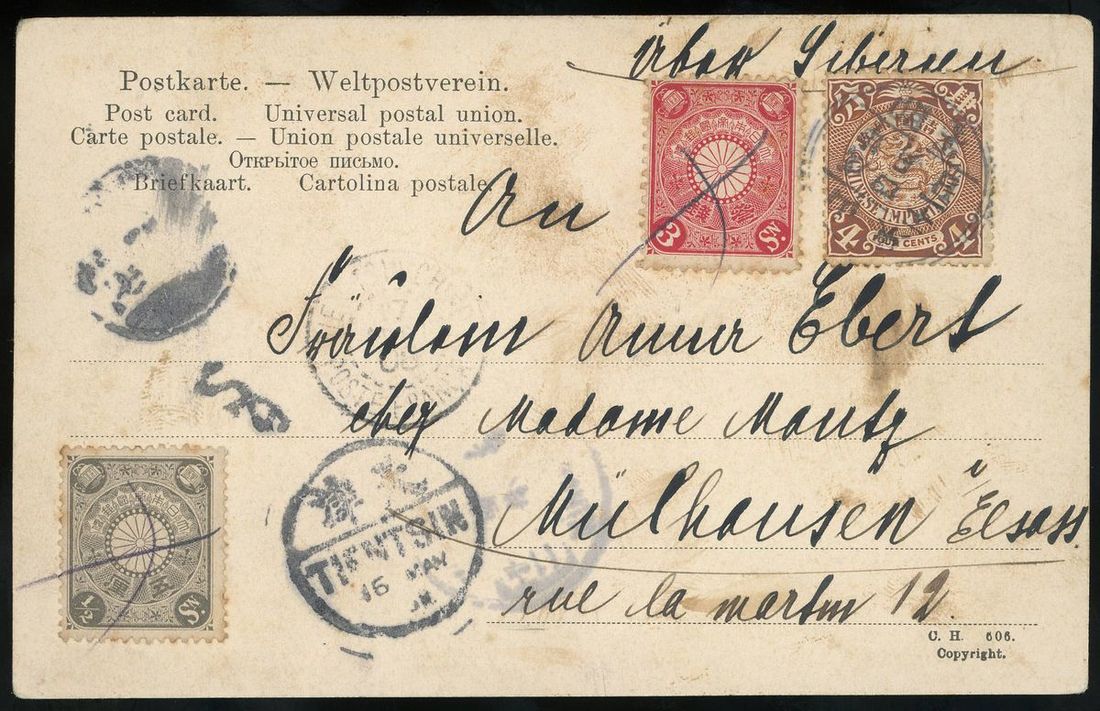 Über Siberien
Postkarte. — Weltpostverein.
Post card. Universal postal union.
Carte postale. — Union postale universelle.
Открытое письмо.
Briefkaart. Cartolina postale.
An
3 Sn.
CHINESE IMPERIAL POST
4 4
CENTS
Fräulein Anna Ebert
chez Madame Mantz
Mülhausen i Elsass
rue la martin 12
½ Sn.
TIENTSIN
16 MAY
C. H. 606.
Copyright.